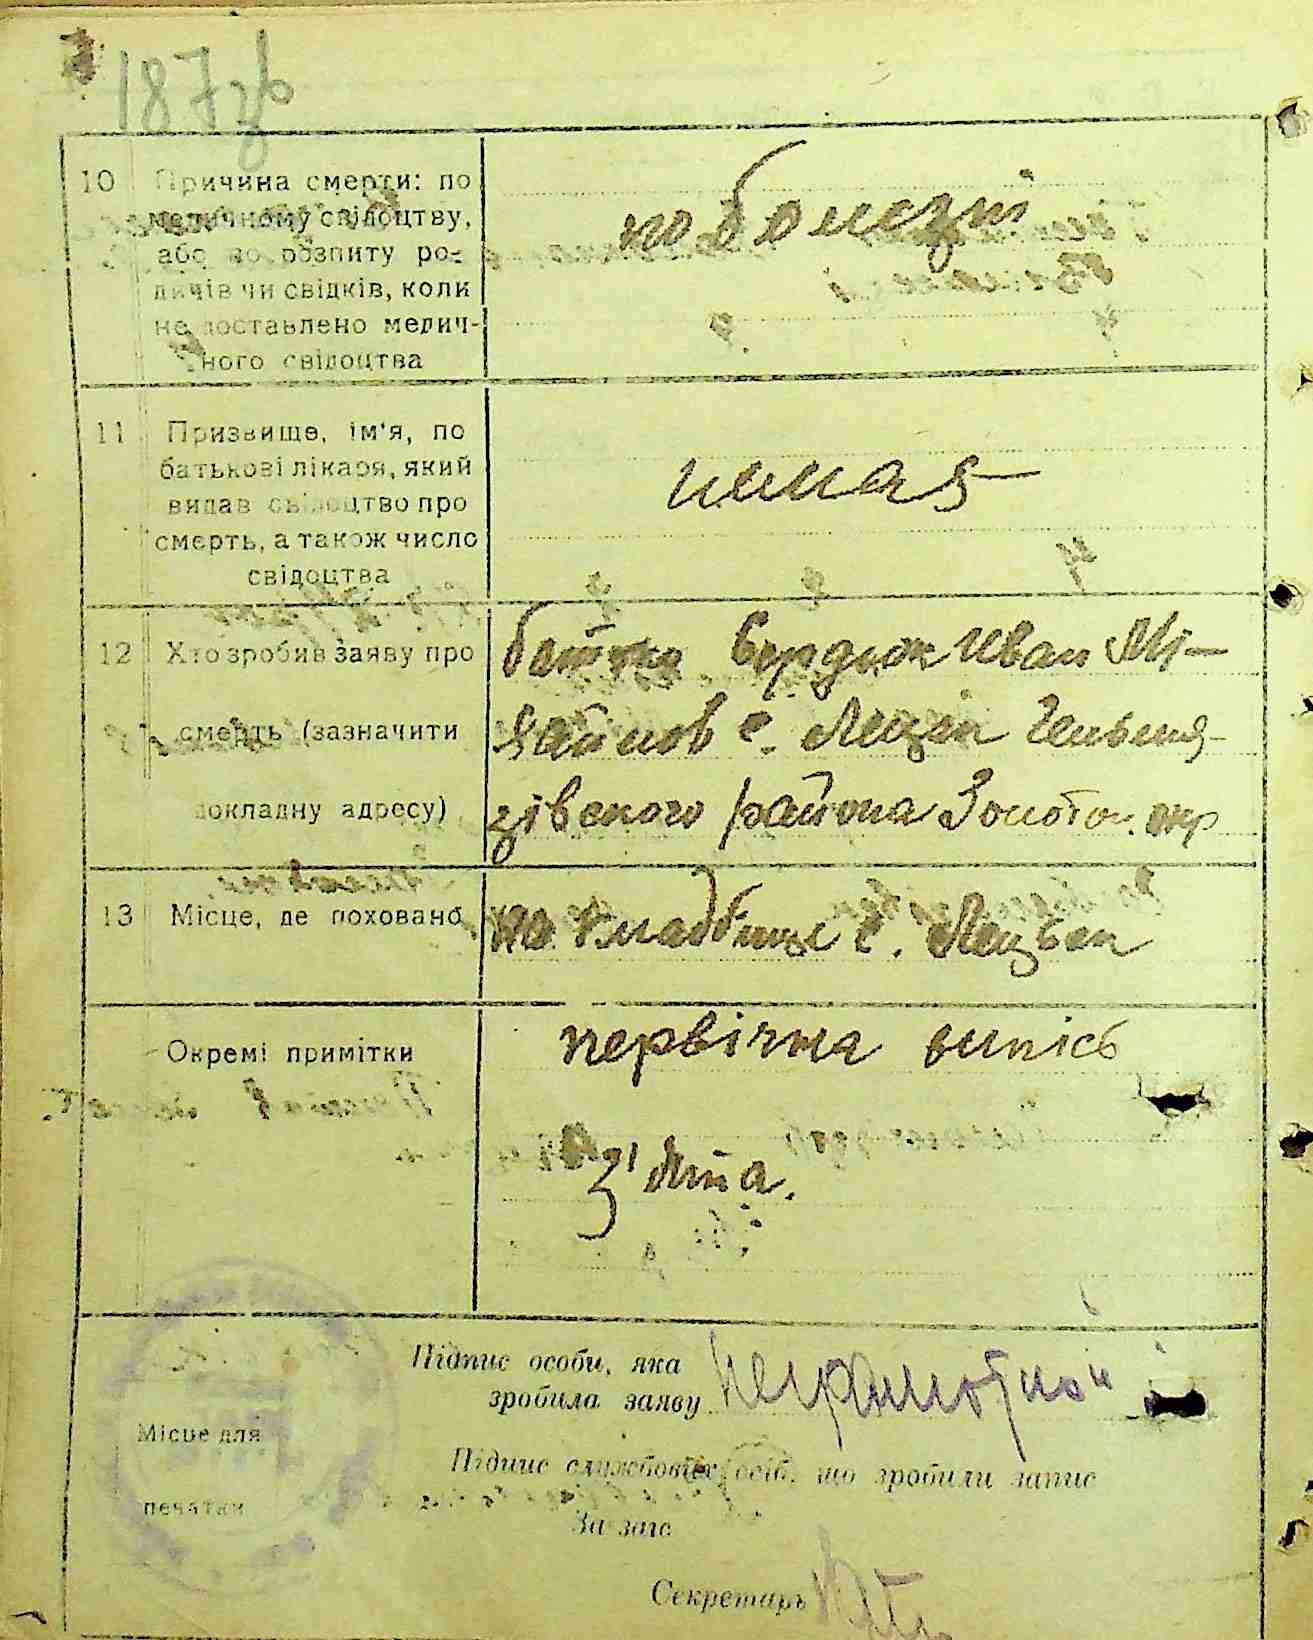 187зв
10 Причина смерти: по
медичному свідоцтву,
або по розпиту ро-
дичів чи свідків, коли
не доставлено медич-
ного свідоцтва
по болезні
11 Призвище, ім'я, по
батькові лікаря, який
видав свідоцтво про
смерть, а також число
свідоцтва
немає
12 Хто зробив заяву про
смерть (зазначити
докладну адресу)
батько Бердюк Иван Мі-
хайлов с. Ляцівк Гельмя-
зівского района Золотон. окр
13 Місце, де поховано
на кладбище с. Ляцівк
Окремі примітки
первічна випісь
з'ята.
Підпис особи, яка
зробила заяву Неграмотной
Місце для
печатки
Підпис службових осіб, що зробили запис
За загс
Секретарь